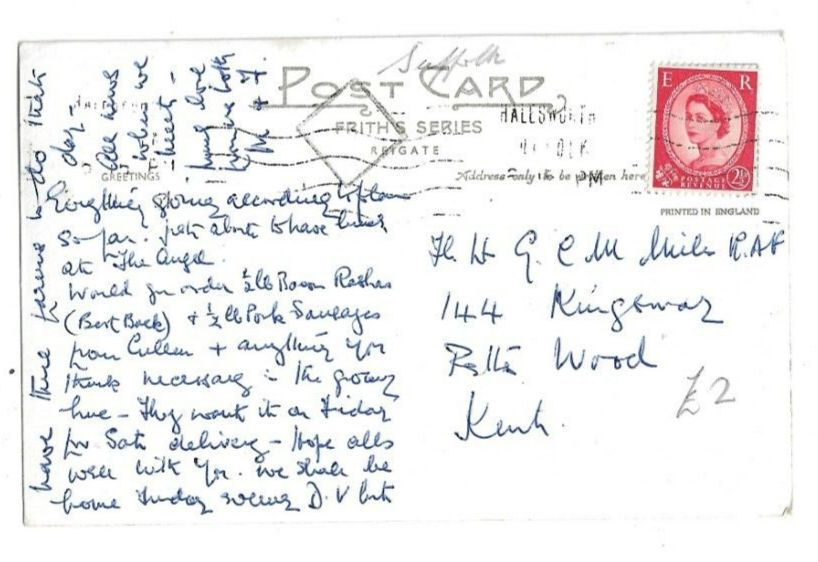 Suffolk
POST CARD
FRITH'S SERIES
REIGATE
HALESWORTH
PM
GREETINGS
Address only to be written here
E R
POSTAGE
REVENUE
2½
PRINTED IN ENGLAND
Everything going according to plan
so far. just about to have lunch
at The Angel.
Would you order ½ lb Bacon Rashers
(Best Back) & ½ lb Pork Sausages
from Cullen + anything you
think necessary in the grocery
line - They want it on Friday
for Sat delivery - Hope alls
well with you. we shall be
home Sunday evening D.V but
have three farms to do that
day -
All news
when we
meet -
love
from us both
M + F.
Fl Lt G C M Miles R.A.F
144 Kingsway
Petts Wood
Kent.
£2